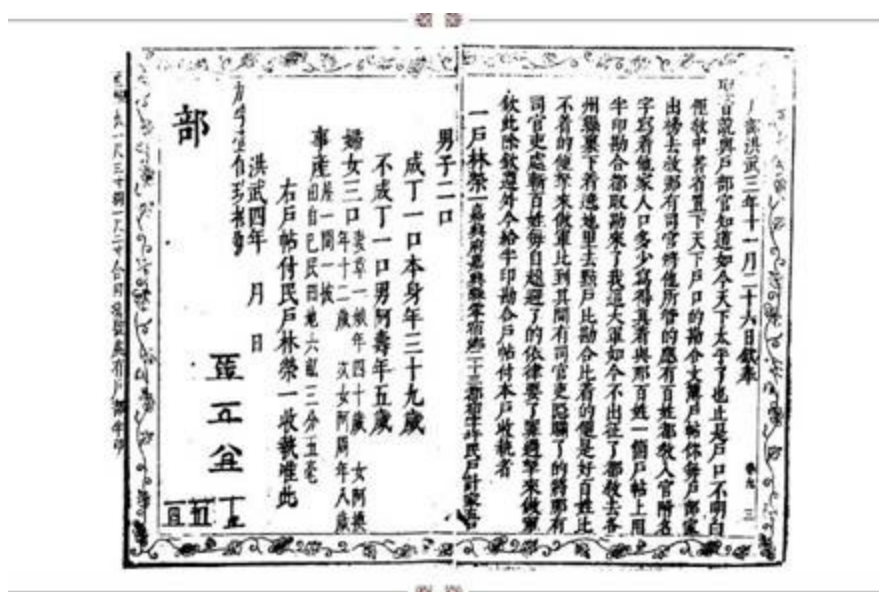 戶部洪武三年十一月二十六日欽奉
聖旨說與戶部官知道如今天下太平了也止是戶口不明白
俚教中書省置下天下戶口的勘合文簿戶帖你每戶部家
出榜去教那有司官將他所管的應有百姓都教入官附名
字寫着他家人口多少寫得真着與那百姓一箇戶帖上用
半印勘合都取勘來了我這大軍如今不出征了都教去各
州縣裏下着遶地里去點戶比勘合比着的便是好百姓比
不着的便拏來做軍比到其間有司官吏隱瞞了的將那有
司官吏處斬百姓每自趓避了的依律要了罪過拏來做軍
欽此除欽遵外今給半印勘合戶帖付本戶收執者
一戶林榮一嘉興府嘉興縣零宿鄉二十三都宿字圩民戶計家五口
男子二口
成丁一口本身年三十九歲
不成丁一口男阿壽年五歲
婦女三口妻章一娘年四十歲 女阿換
年十二歲 次女阿周年八歲
事產屋一間一披
田自己民田地六畝三分五毫
右戶帖付民戶林榮一收執准此
洪武四年 月 日
部
長一尺三寸闊一尺二寸合同號墨處有戶部半印